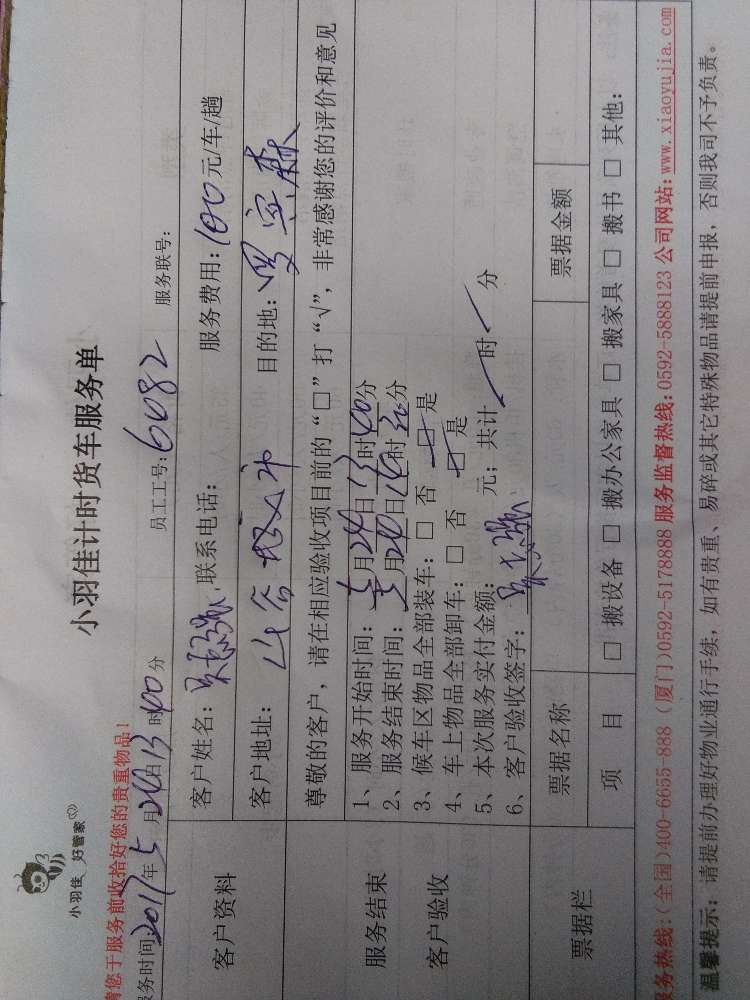 小羽佳 好管家
小羽佳计时货车服务单
请您于服务前收拾好您的贵重物品！
服务时间:2017年5月24日13时40分 员工工号:6082 服务联号:
客户资料
客户姓名: 联系电话: 服务费用:100元/车/趟
客户地址: 目的地:
服务结束
客户验收
尊敬的客户，请在相应验收项目前的“□”打“√”，非常感谢您的评价和意见
1、服务开始时间: 5月24日13时40分
2、服务结束时间: 5月24日16时30分
3、候车区物品全部装车: □ 否 □是
4、车上物品全部卸车: □ 否 □是
5、本次服务实付金额: 元；共计 时 分
6、客户验收签字:
票据栏
票据名称 票据金额
项 目 □ 搬设备 □ 搬办公家具 □ 搬家具 □ 搬书 □ 其他:
务热线:(全国)400-6655-888 (厦门)0592-5178888 服务监督热线:0592-5888123 公司网站:www.xiaoyujia.com
温馨提示: 请提前办理好物业通行手续，如有贵重、易碎或其它特殊物品请提前申报，否则我司不予负责。